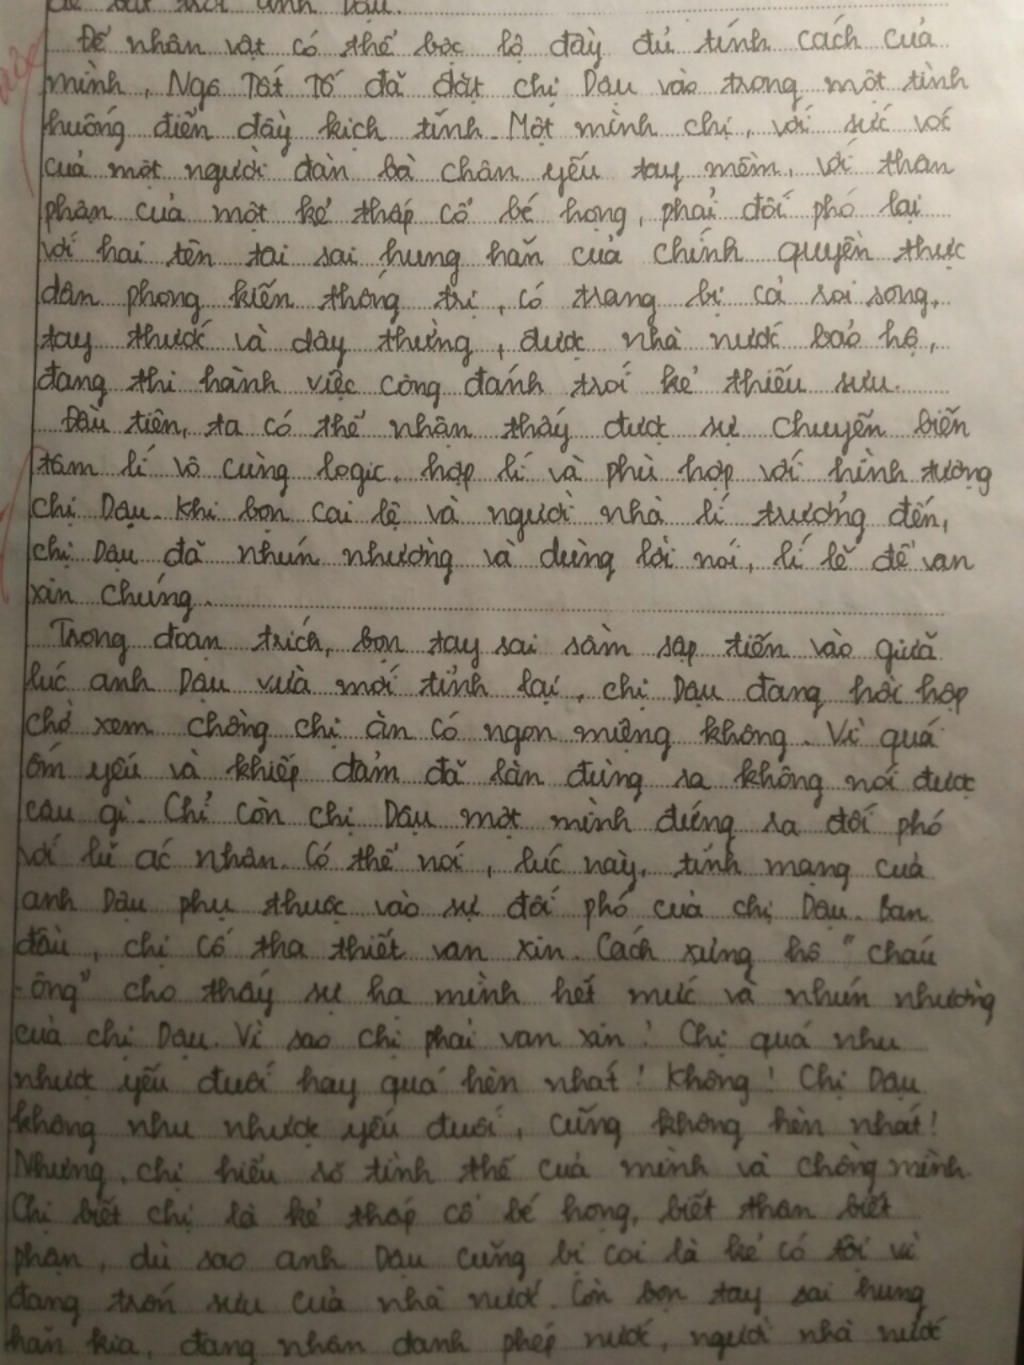 để bắt trói anh Dậu.
Để nhân vật có thể bộc lộ đầy đủ tính cách của
mình, Ngô Tất Tố đã đặt chị Dậu vào trong một tình
huống điển đầy kịch tính. Một mình chị, với sức vóc
của một người đàn bà chân yếu tay mềm, với thân
phận của một kẻ thấp cổ bé họng, phải đối phó lại
với hai tên tai sai hung hãn của chính quyền thực
dân phong kiến thống trị, có trang bị cả roi song,
tay thước và dây thừng, được nhà nước bảo hộ,
đang thi hành việc công đánh trói kẻ thiếu sưu.
Đầu tiên, ta có thể nhận thấy được sự chuyển biến
tâm lí vô cùng logic, hợp lí và phù hợp với hình tượng
chị Dậu. Khi bọn cai lệ và người nhà lí trưởng đến,
chị Dậu đã nhún nhường và dùng lời nói, lí lẽ để van
xin chúng.
Trong đoạn trích, bọn tay sai sầm sập tiến vào giữa
lúc anh Dậu vừa mới tỉnh lại, chị Dậu đang hồi hộp
chờ xem chồng chị ăn có ngon miệng không. Vì quá
ốm yếu và khiếp đảm đã lăn đùng ra không nói được
câu gì. Chỉ còn chị Dậu một mình đứng ra đối phó
với lũ ác nhân. Có thể nói, lúc này, tính mạng của
anh Dậu phụ thuộc vào sự đối phó của chị Dậu. Ban
đầu, chị cố tha thiết van xin. Cách xưng hô "cháu
- ông" cho thấy sự hạ mình hết mức và nhún nhường
của chị Dậu. Vì sao chị phải van xin! Chị quá nhu
nhược yếu đuối hay quá hèn nhát! Không! Chị Dậu
không nhu nhược yếu đuối, cũng không hèn nhát!
Nhưng, chị hiểu rõ tình thế của mình và chồng mình.
Chị biết chị là kẻ thấp cổ bé họng, biết thân biết
phận, dù sao anh Dậu cũng bị coi là kẻ có tội vì
đang trốn sưu của nhà nước. Còn bọn tay sai hung
hãn kia, đang nhân danh phép nước, người nhà nước